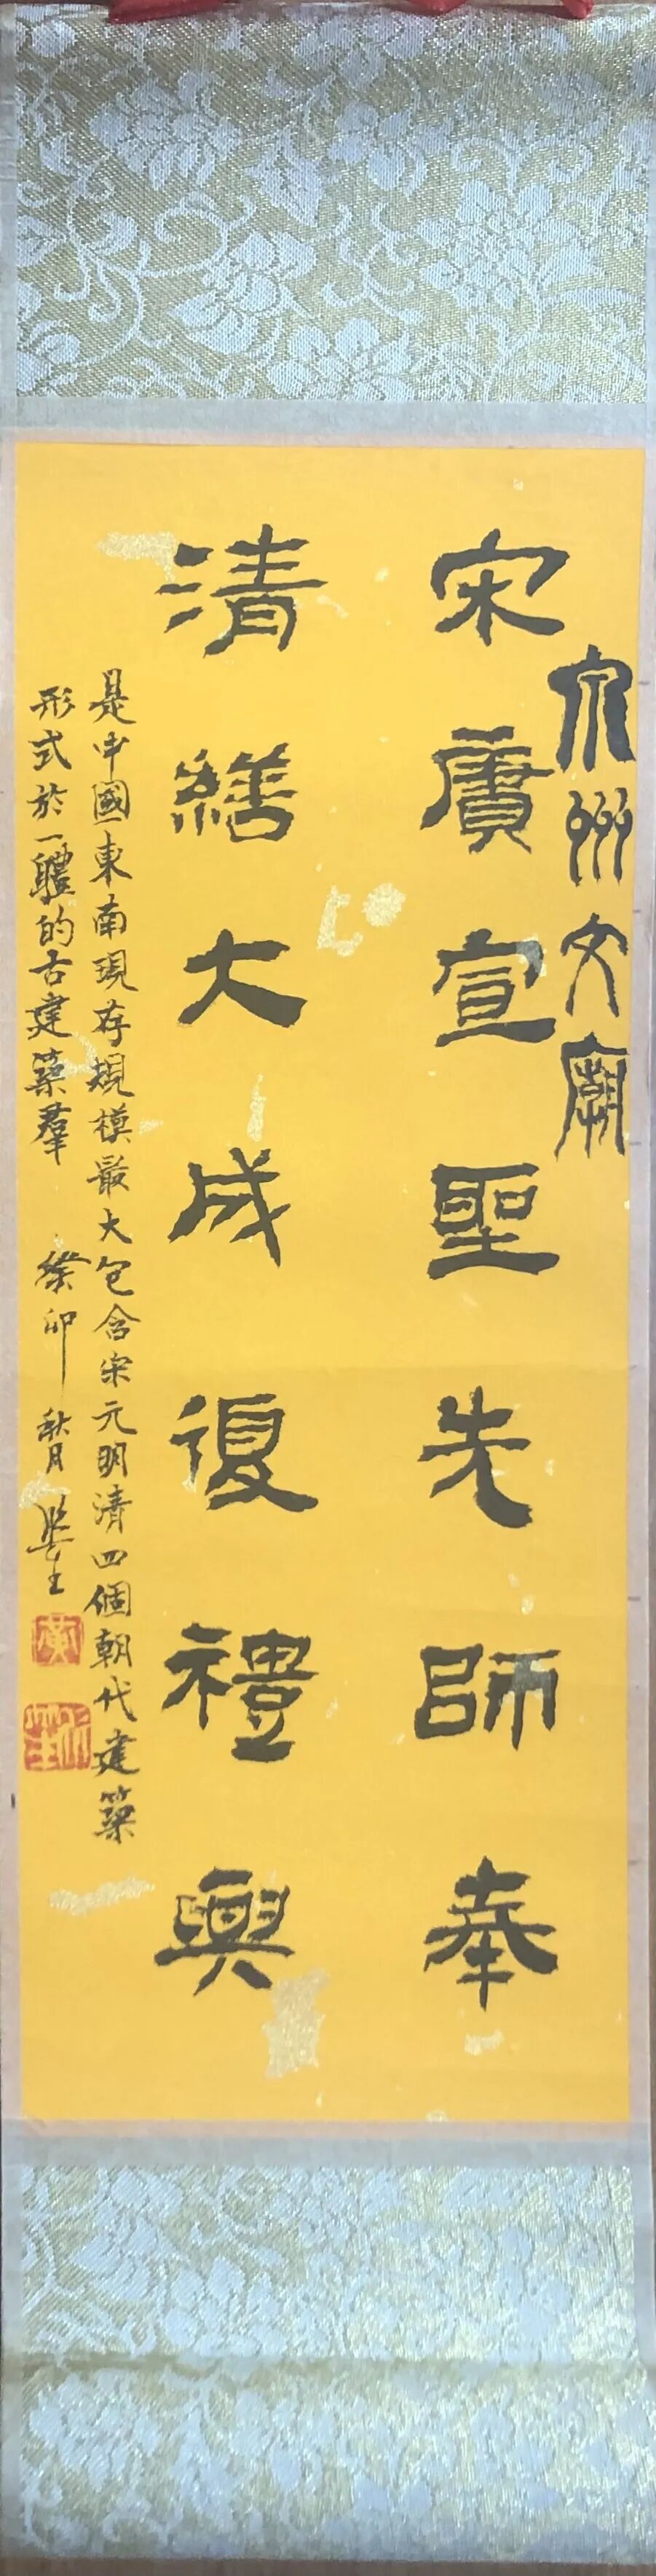 泉州文廟
宋賡宣聖先師奉
清繕大成復禮興
是中國東南現存規模最大包含宋元明清四個朝代建築
形式於一體的古建築羣 癸卯秋月